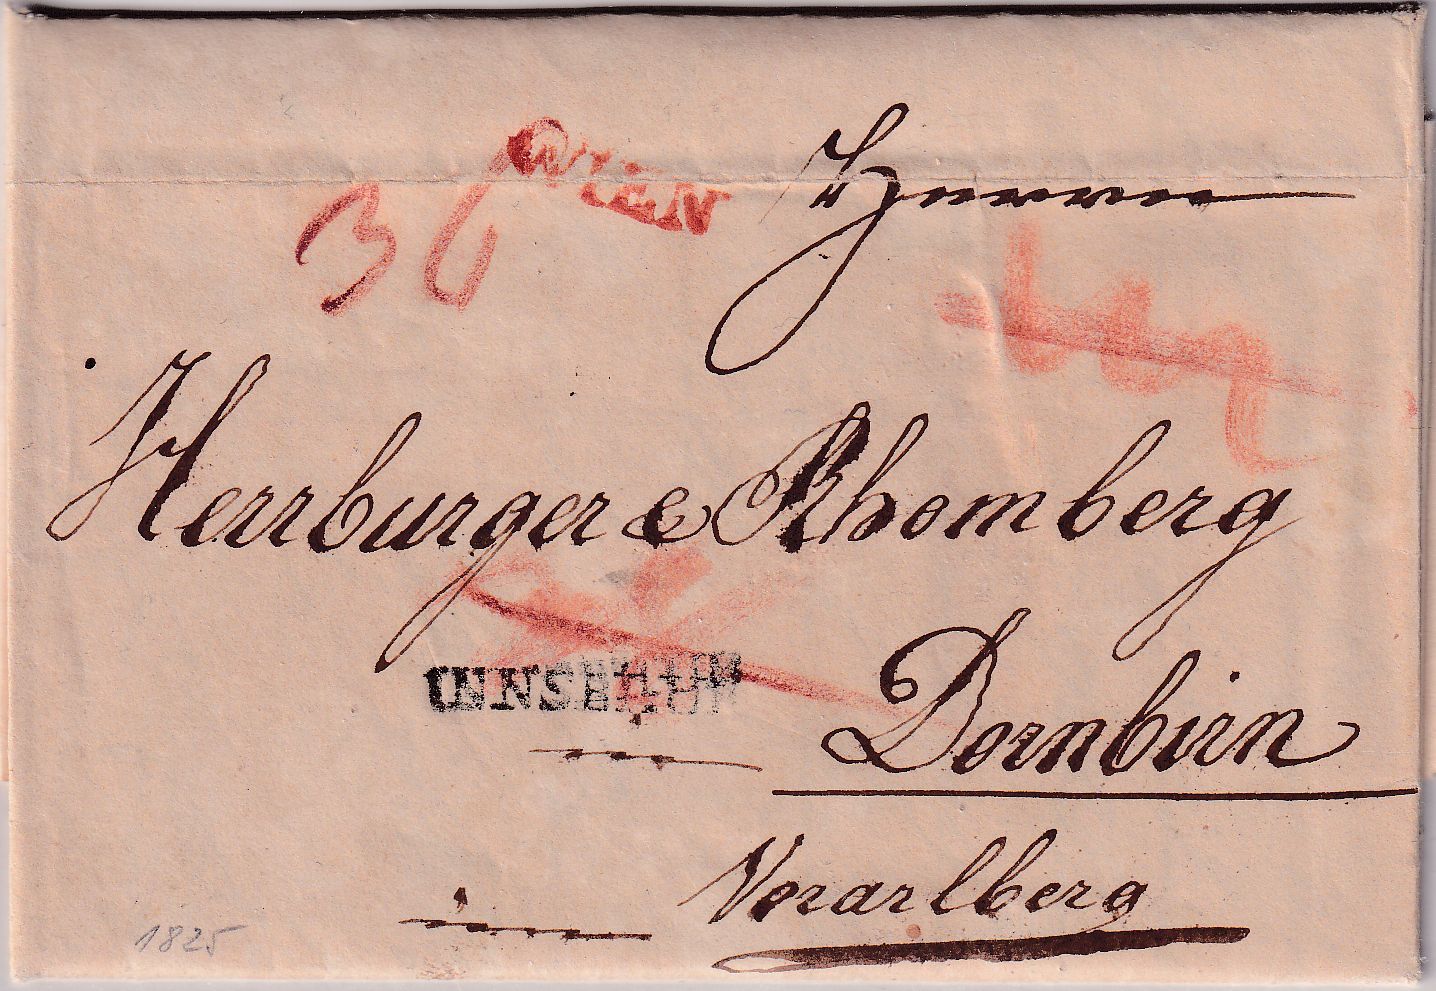 WIEN
36
Herrn
Herrburger & Rhomberg
INNSBRUK
in Dornbirn
im Vorarlberg
1825